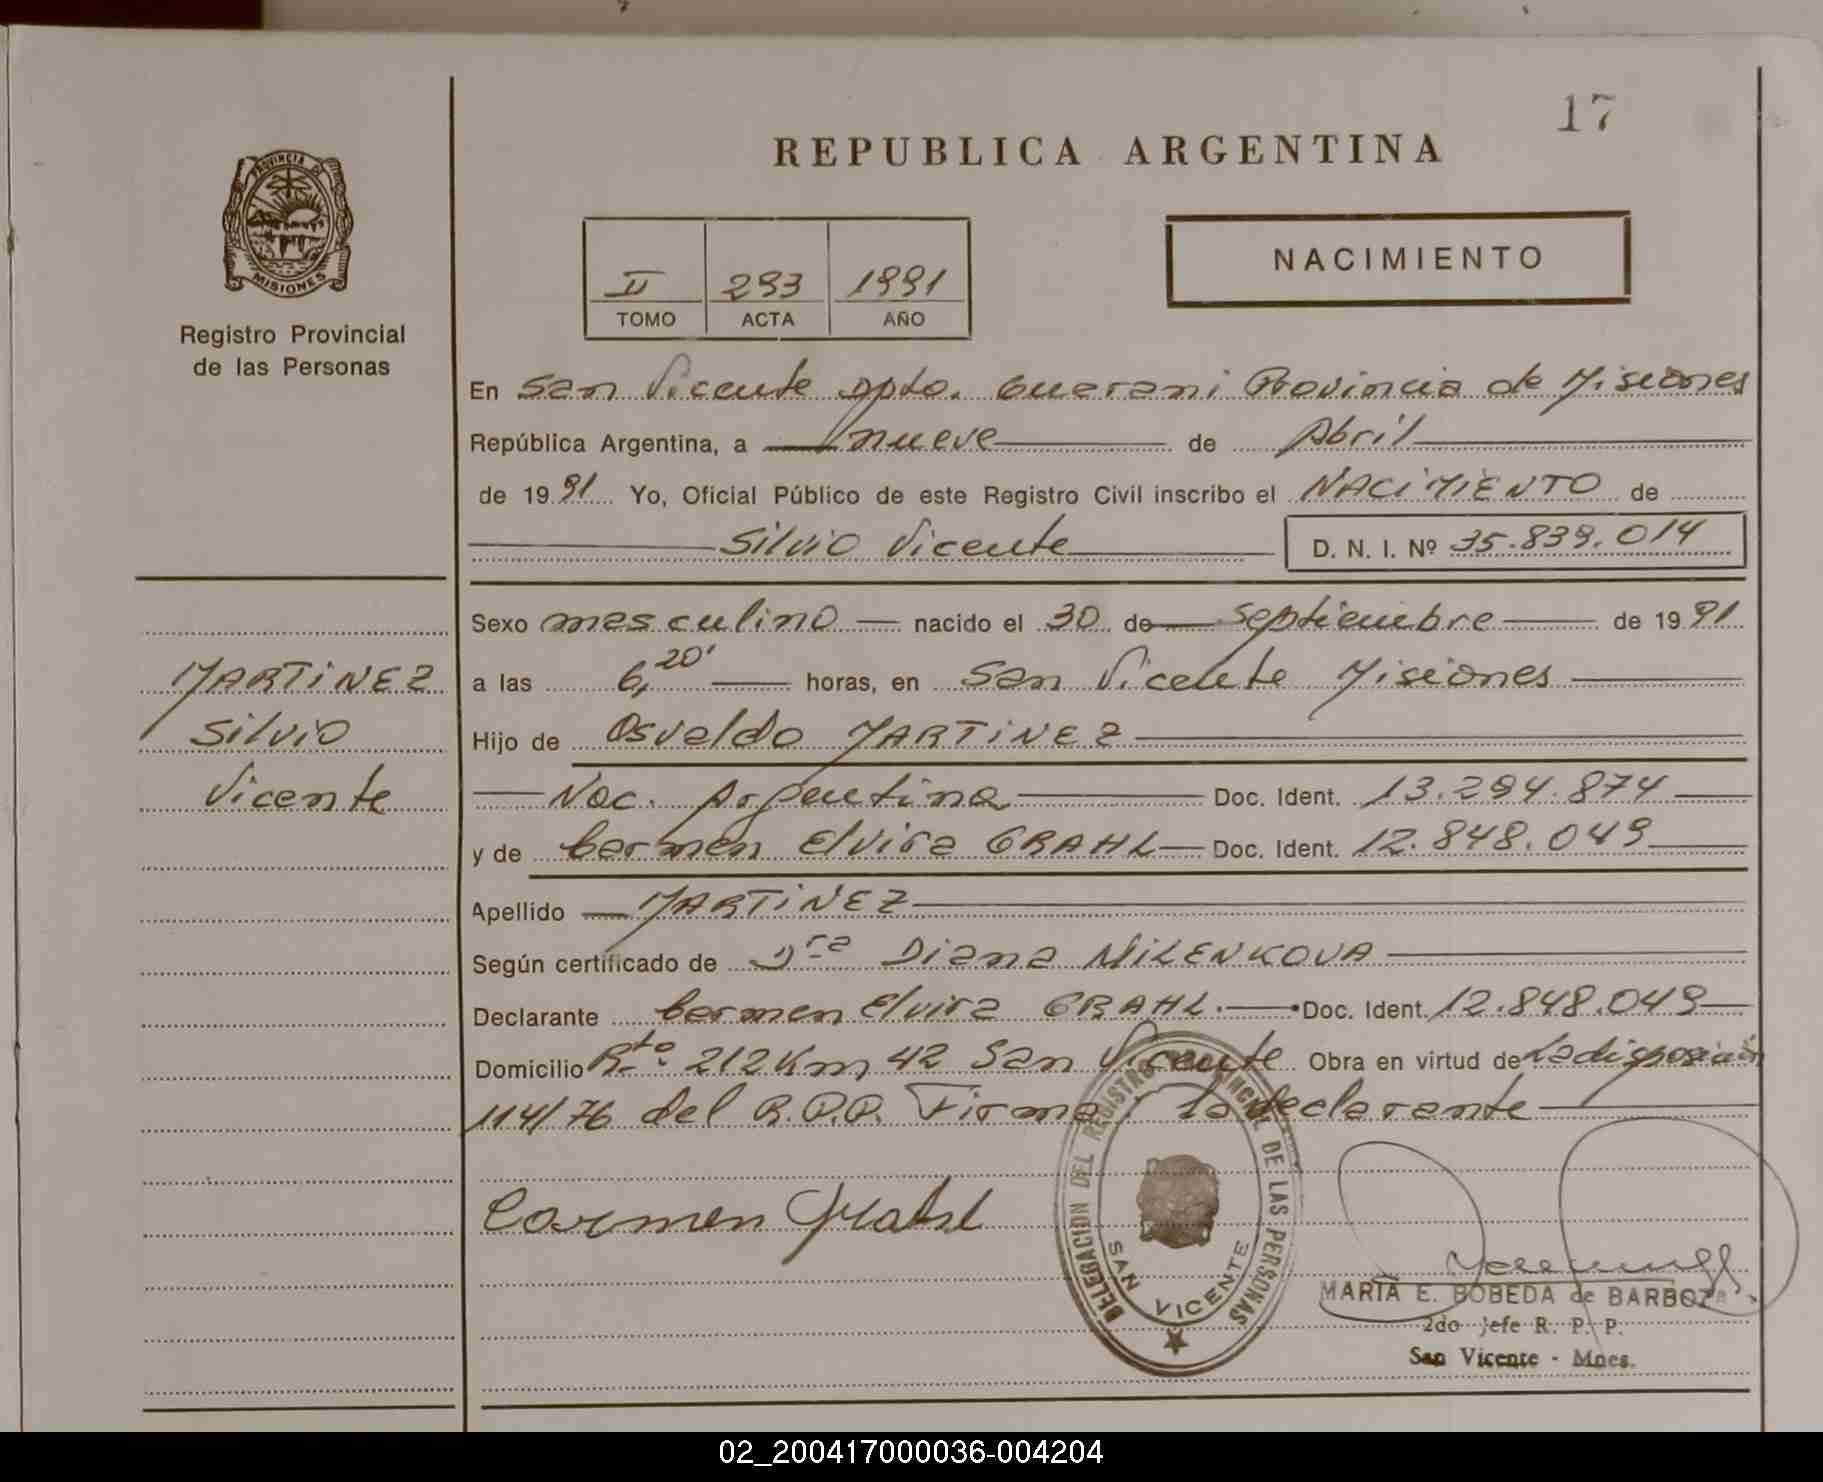 17
REPUBLICA ARGENTINA
PROVINCIA DE
MISIONES
Registro Provincial
de las Personas
II 293 1991
TOMO ACTA AÑO
NACIMIENTO
En San Vicente Dpto. Guarani Provincia de Misiones
República Argentina, a nueve de Abril
de 1991 Yo, Oficial Público de este Registro Civil inscribo el NACIMIENTO de
Silvio Vicente D. N. I. Nº 35.839.014
Sexo masculino nacido el 30 de septiembre de 1991
a las 6,20' horas, en San Vicente Misiones
Hijo de Osvaldo MARTINEZ
Nac. Argentina Doc. Ident. 13.294.874
y de Carmen Elvira GRAHL Doc. Ident. 12.848.049
Apellido MARTINEZ
Según certificado de Dra Diana MILENKOVA
Declarante Carmen Elvira GRAHL. Doc. Ident. 12.848.049
Domicilio Rta. 212 Km 42 San Vicente Obra en virtud de La disposición
114/76 del R.P.P. Firma: la declarante
MARTINEZ
Silvio
Vicente
Carmen Grahl
DELEGACION DEL REGISTRO PROVINCIAL DE LAS PERSONAS
SAN VICENTE
MARIA E. BOBEDA de BARBOZA
2do Jefe R. P. P.
San Vicente - Mnes.
02_200417000036-004204